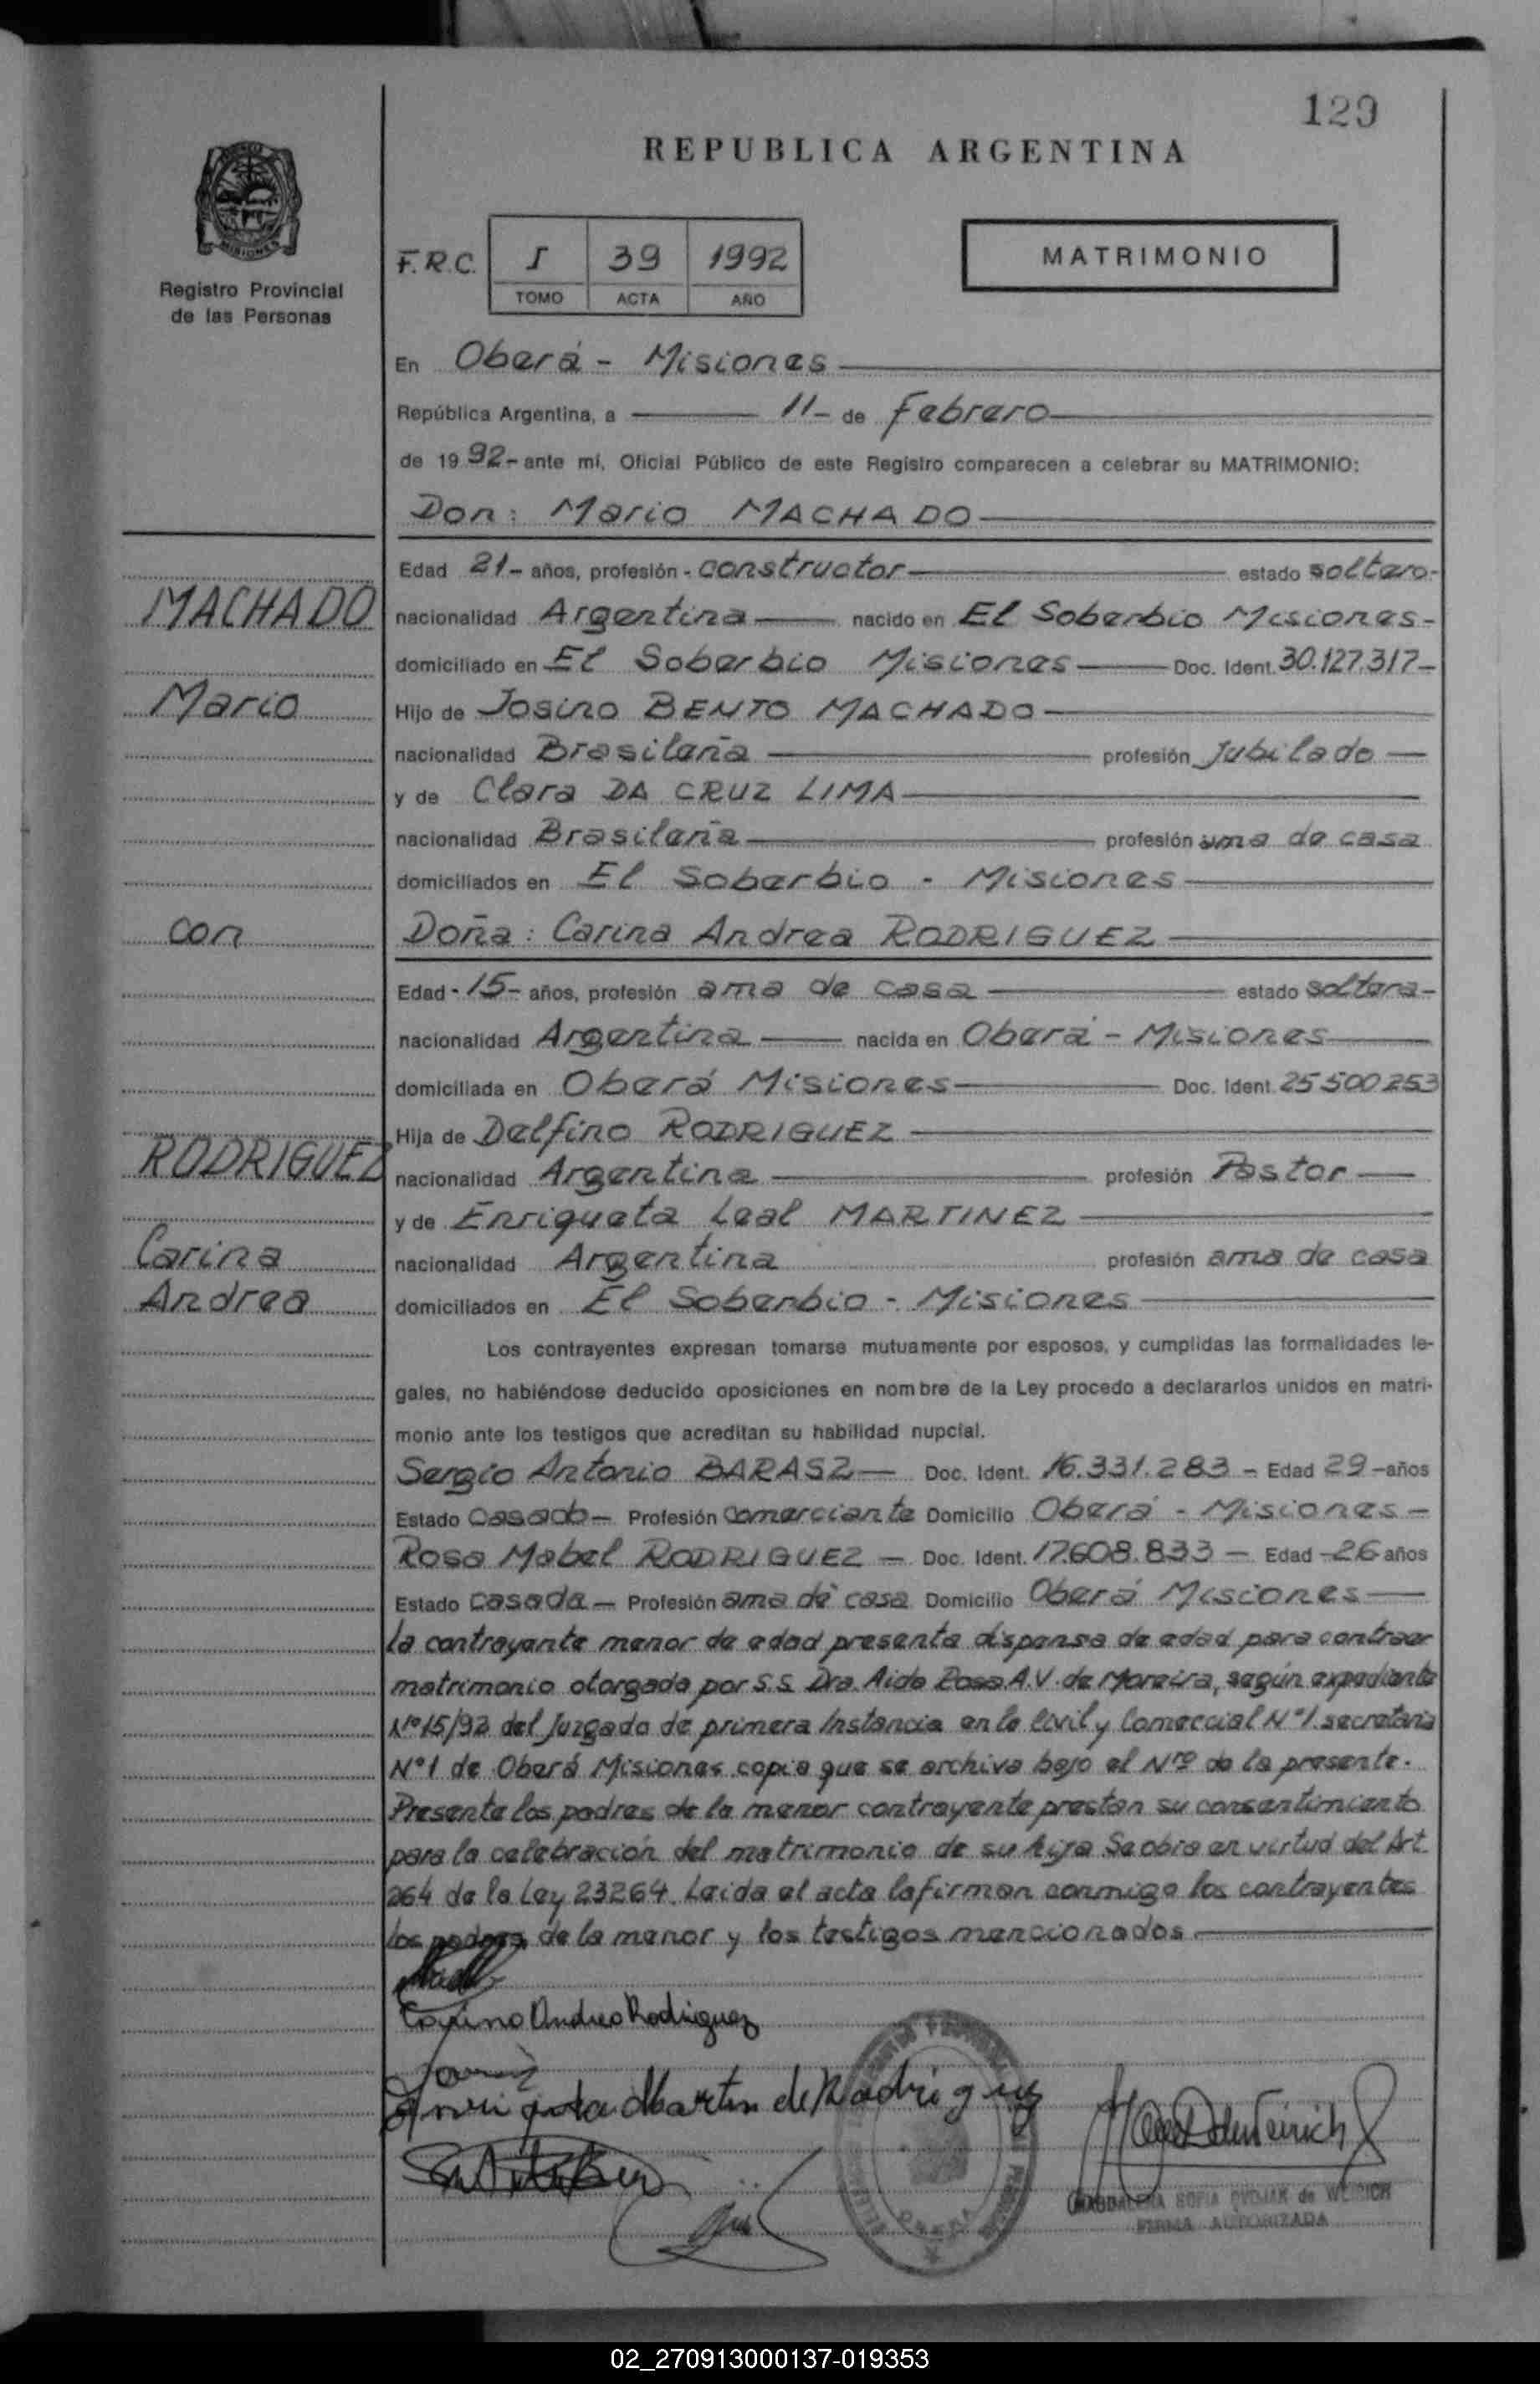 129
REPUBLICA ARGENTINA
MISIONES
Registro Provincial
de las Personas
F.R.C. I 39 1992
TOMO ACTA AÑO
MATRIMONIO
En Oberá - Misiones
República Argentina, a 11- de Febrero
de 19 92- ante mí, Oficial Público de este Registro comparecen a celebrar su MATRIMONIO:
Don: Mario MACHADO
Edad 21- años, profesión - constructor estado soltero-
MACHADO
nacionalidad Argentina nacido en El Soberbio Misiones-
domiciliado en El Soberbio Misiones Doc. Ident. 30.127.317-
Mario
Hijo de Josino BENTO MACHADO
nacionalidad Brasileña profesión Jubilado
y de Clara DA CRUZ LIMA
nacionalidad Brasileña profesión ama de casa
domiciliados en El Soberbio - Misiones
con
Doña: Carina Andrea RODRIGUEZ
Edad - 15- años, profesión ama de casa estado soltera-
nacionalidad Argentina nacida en Oberá - Misiones
domiciliada en Oberá Misiones Doc. Ident. 25500253
Hija de Delfino RODRIGUEZ
RODRIGUEZ
nacionalidad Argentina profesión Pastor
y de Enriqueta Leal MARTINEZ
Carina
nacionalidad Argentina profesión ama de casa
Andrea
domiciliados en El Soberbio - Misiones
Los contrayentes expresan tomarse mutuamente por esposos, y cumplidas las formalidades le-
gales, no habiéndose deducido oposiciones en nombre de la Ley procedo a declararlos unidos en matri-
monio ante los testigos que acreditan su habilidad nupcial.
Sergio Antonio BARASZ Doc. Ident. 16.331.283 - Edad 29 - años
Estado Casado - Profesión comerciante Domicilio Oberá - Misiones -
Rosa Mabel RODRIGUEZ - Doc. Ident. 17.608.833 - Edad - 26 años
Estado casada - Profesión ama de casa Domicilio Oberá Misiones
la contrayente menor de edad presenta dispensa de edad para contraer
matrimonio otorgada por S.S. Dra. Aida Rosa A.V. de Moreira, según expediente
Nº 15/92 del Juzgado de primera Instancia en lo Civil y Comercial Nº 1. secretaria
Nº 1 de Oberá Misiones copia que se archiva bajo el Nro de la presente.
Presente los padres de la menor contrayente prestan su consentimiento
para la celebración del matrimonio de su hija Se obra en virtud del Art.
264 de la Ley 23264. Leida el acta la firman conmigo los contrayentes
los padres de la menor y los testigos mencionados
Carina Andrea Rodriguez
MAGDALENA SOFIA de WEIRICH
FIRMA AUTORIZADA
02_270913000137-019353